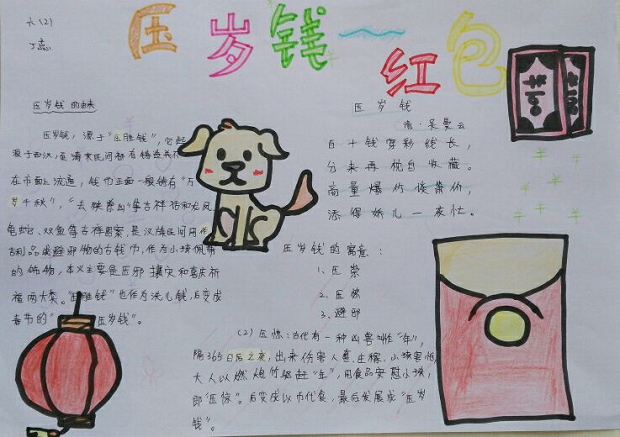 六(2)
丁蕊
压岁钱~红包
压岁钱的由来
压岁钱,源于"压胜钱",它起
源于西汉,至清末民间都有铸造未
在市面上流通,钱币正面一般铸有"万
岁千秋"、"去殃除凶"等吉祥话和龙凤、
龟蛇、双鱼等吉祥图案,是汉族民间用作
吉利品或避邪物的古钱币,作为小孩佩带
的饰物,本义主要是压邪攘灾和喜庆祈
福两大类。"压胜钱"也作为洗儿钱,后变成
春节的"压岁钱"。
压岁钱
清·吴曼云
百十钱穿彩线长,
分来再枕自收藏。
商量爆竹谈箫价,
添得娇儿一夜忙。
压岁钱的寓意:
1、压祟
2、压惊
3、避邪
(2)压惊:古代有一种凶兽叫作"年",
隔365日后之夜,出来伤害人畜、庄稼、小孩害怕,
大人以燃炮竹驱赶"年",用食品安慰小孩,
即"压惊"。后变成以币代食,最后发展成"压岁
钱"。